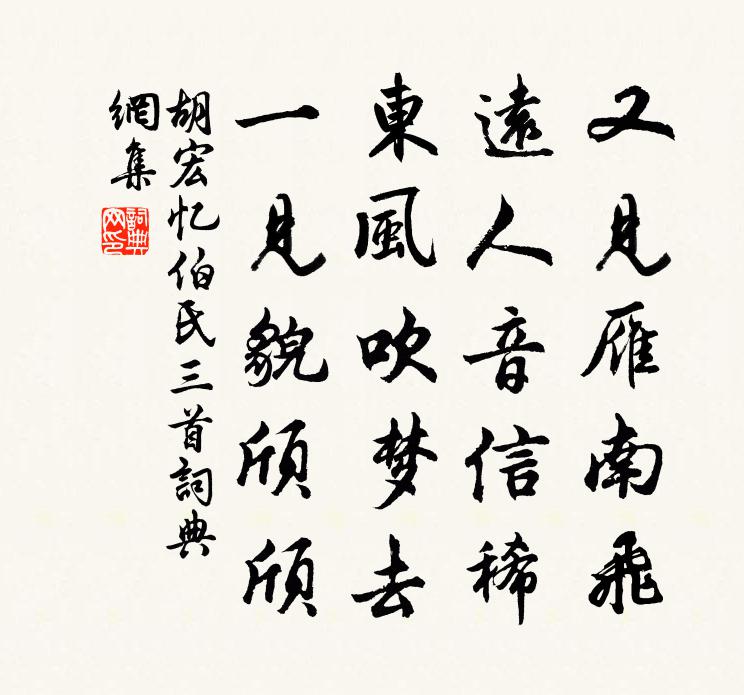 又見雁南飛
遠人音信稀
東風吹梦去
一見貌頎頎
胡宏忆伯氏三首詞典
網集
詞典
网印